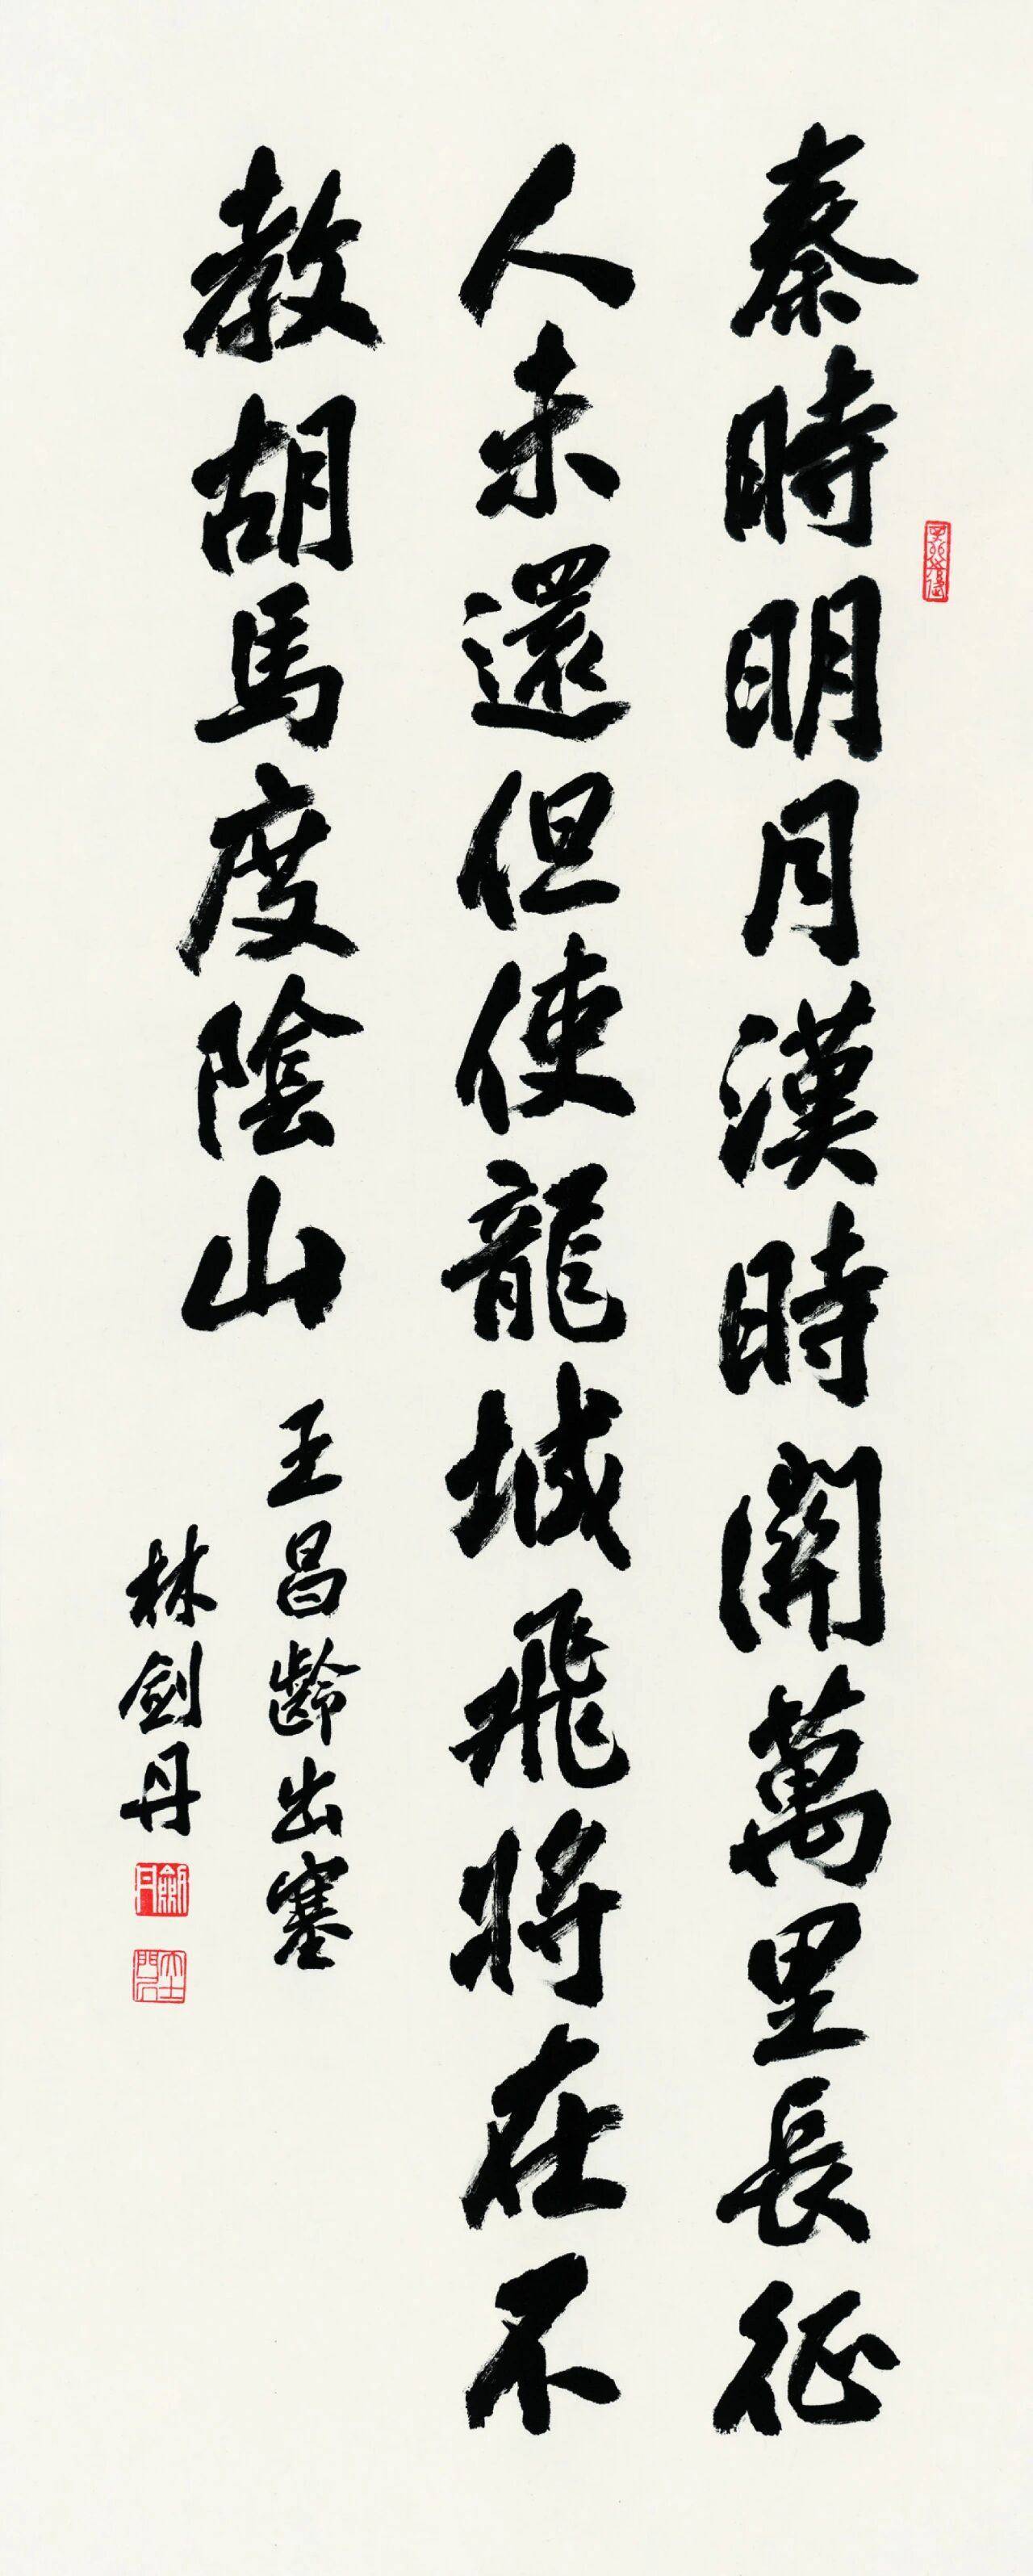 秦時明月漢時關萬里長征
人未還但使龍城飛將在不
教胡馬度陰山
王昌齡出塞
林劍丹